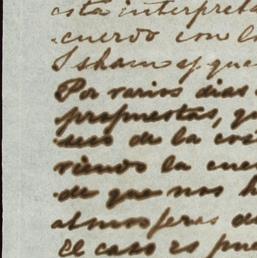 esta interpreta
cuerdo con l
Isham y que
Por varios dias
propuestas, q
deco de la cos
viendo la cues
de que nos h
atmosferas de
El caso es pue